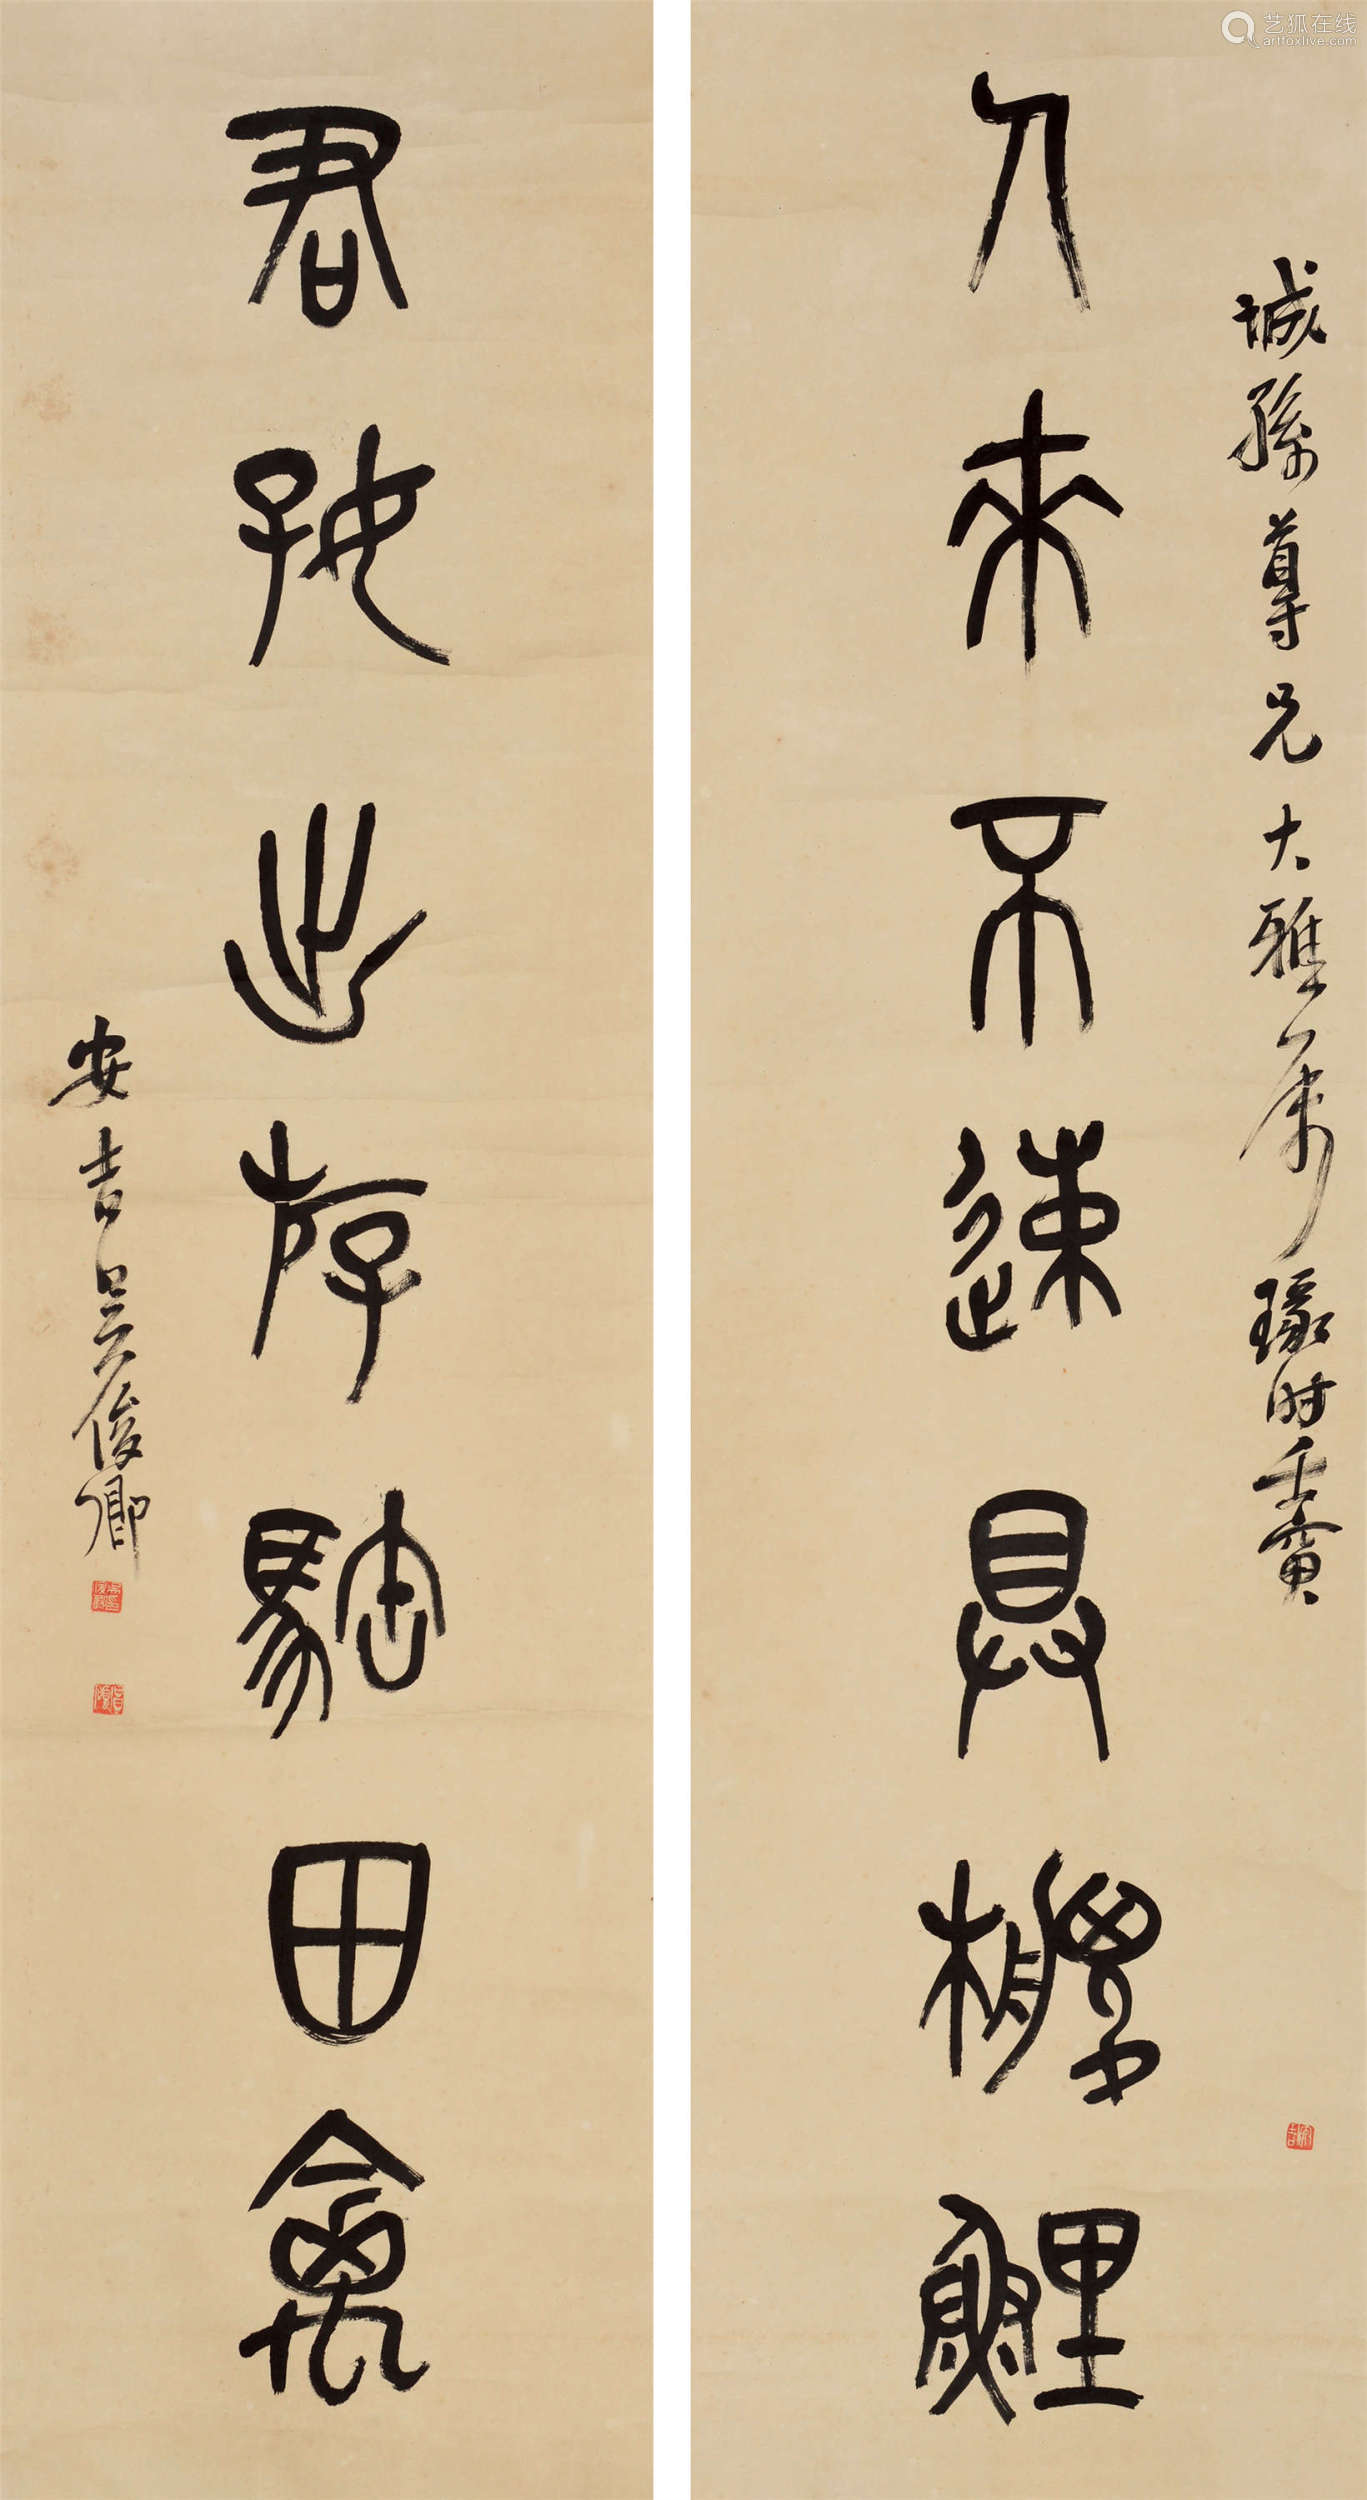 艺狐在线
artfoxlive.com
誠孫尊兄大雅屬瑑時壬寅
人來不速具鯉
君好出斿騊田禽
安吉吳俊卿